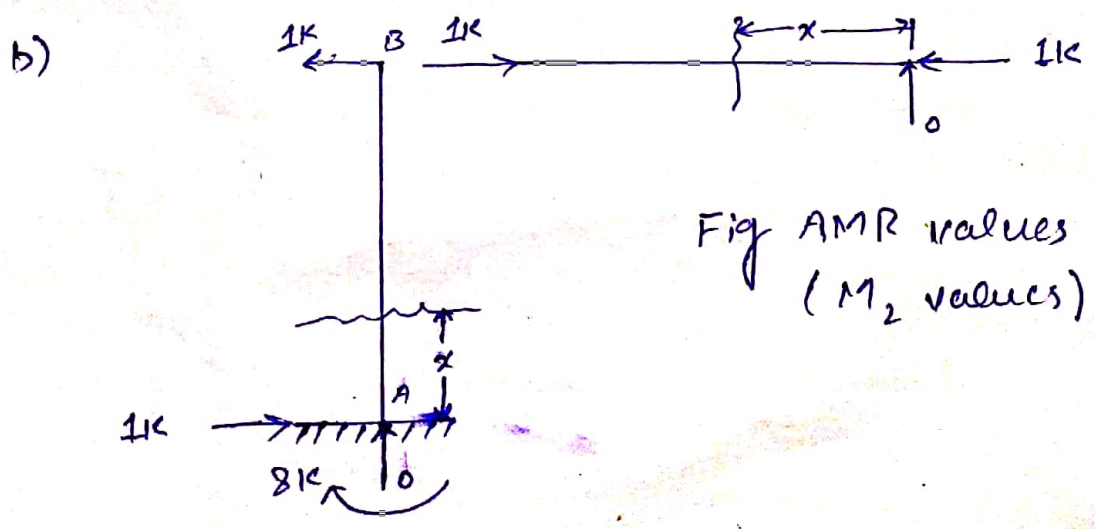 b)
1K B 1K x 1K
0
Fig AMR values
(M₂ values)
x
A
1K
8K 0